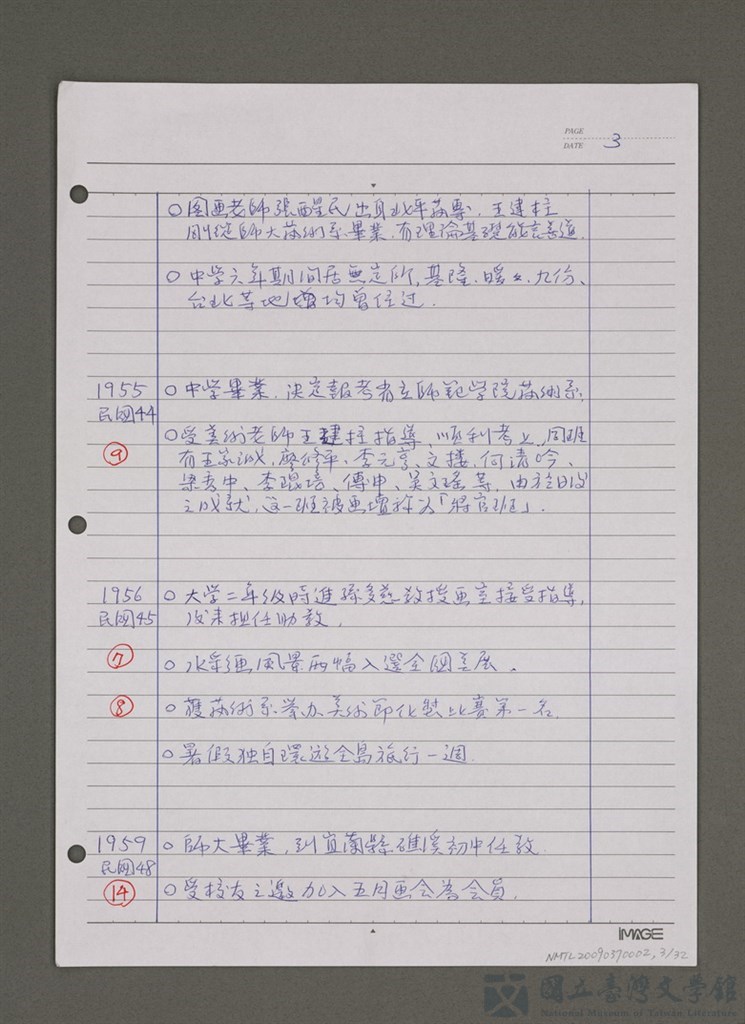 PAGE
DATE 3
○ 圖画老師張醒民出身北平藝專,王建柱
剛從師大藝術系畢業,有理論基礎能言善道.
○ 中学六年期间居無定所,基隆.暖々.九份、
台北等地均曾住过.
1955 ○ 中学畢業,決定報考省立師範学院藝術系.
民国44
⑨ ○ 受美術老師王建柱指導,順利考上,同班
有王家誠,廖修平、李元亨、文樓、何清吟、
梁秀中、李焜培、傅申、吳文瑤等,由於日後
之成就,这一班被画壇称为「將官班」.
1956 ○ 大学二年级時進孫多慈教授画室接受指導,
民国45 後来担任助教.
⑦ ○ 水彩画風景兩幅入選全國美展.
⑧ ○ 獲藝術系举办美術節化裝比賽第一名.
○ 暑假独自環遊全島旅行一週.
1959 ○ 師大畢業,到宜蘭縣礁溪初中任教.
民国48
⑭ ○ 受校友之邀加入五月画会為会員.
IMAGE
NMTL20090370002, 3/32
國立臺灣文學館
National Museum of Taiwan Literature